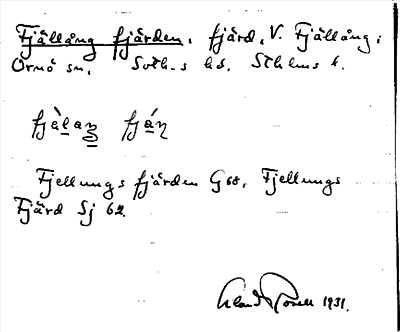 Fjällång fjärden, fjärd, V. Fjällång;
Ornö sn, Soth-s hd. Sthlms l.
fjälaŋ fján
Fjellungs fjärden G 68, Fjellungs
Fjärd Sj 62.
1931.